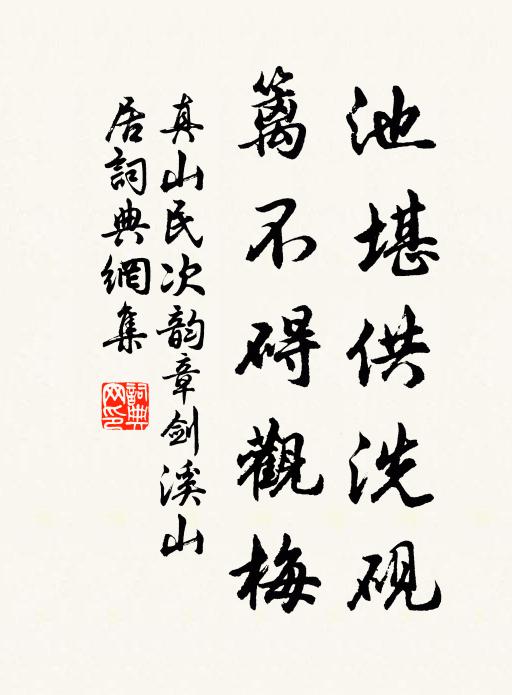 池堪供洗硯
籬不碍觀梅
真山民次韵章劍溪山
居詞典網集
詞典
网印